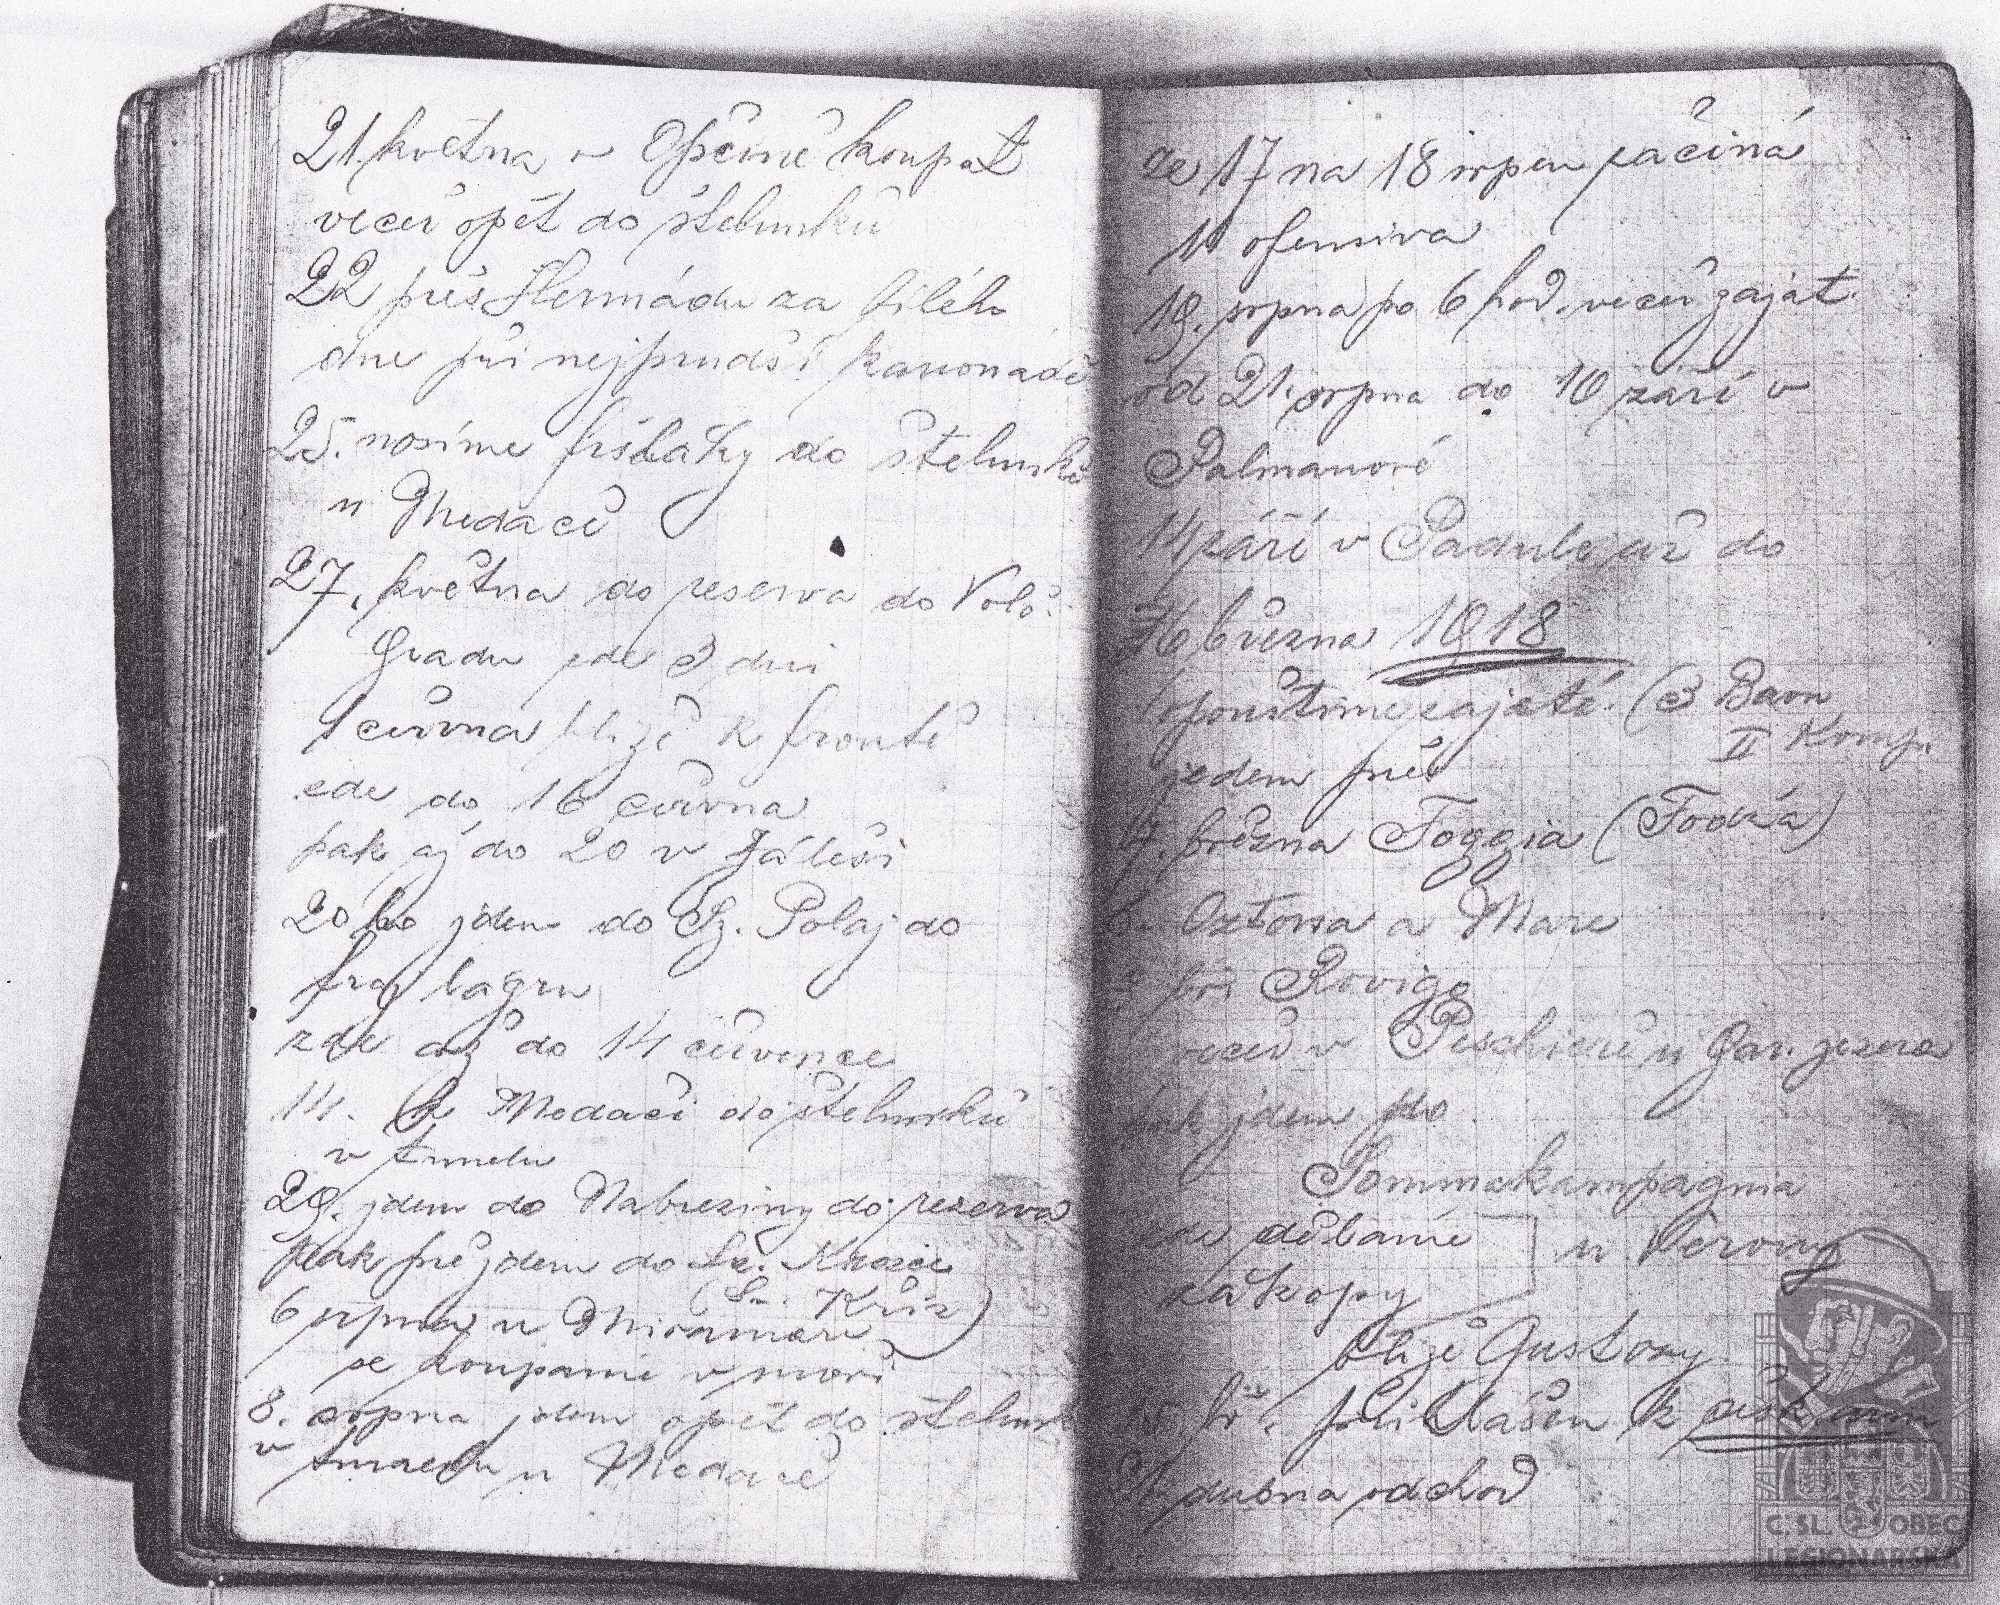 21. května v Opčině koupat
večer opět do štelunků
22 přes Hermádu za bílého
dne při nejprudší kanonádě
25. nosíme fišlaky do štelunků
u Medači
27. května do reserva do Volč.
Gradu zde 3 dni
1 června blíže k frontě
zde do 16 června
pak aj do 20 v
20ho jdem do Sz. Polaj do
fraj lagru
zde až do 14 července
14. k Medači do štelunků
v tunelu
29. jdem do Nabreziny do reserva
pak přejdem do Sv. Kreoice
(Sv. Kříž)
6 srpna u Miramare
se koupáme v moři
8. srpna jdem opět do štelunk
v tunelu u Medače
ze 17 na 18 srpen začíná
11 ofensiva
19. srpna po 6 hod. večer zaját.
od 21. srpna do 10 září v
Palmanově
14 září v Padule až do
16 března 1918
opouštíme zajetí. (3 Baon
II Komp.
jedem přes
17. března Foggia (Fodžá)
Oztona a Mare
bři Rovigo
večer v Peschieře u Gar. jezera
pak jdem do
Sommakampagnia
zde děláme u Verony
zákopy
blíže Gustozy.
bř. přihlášen k česk. arm
dubna odchod
Č. SL. OBEC
LEGIONÁŘSKÁ